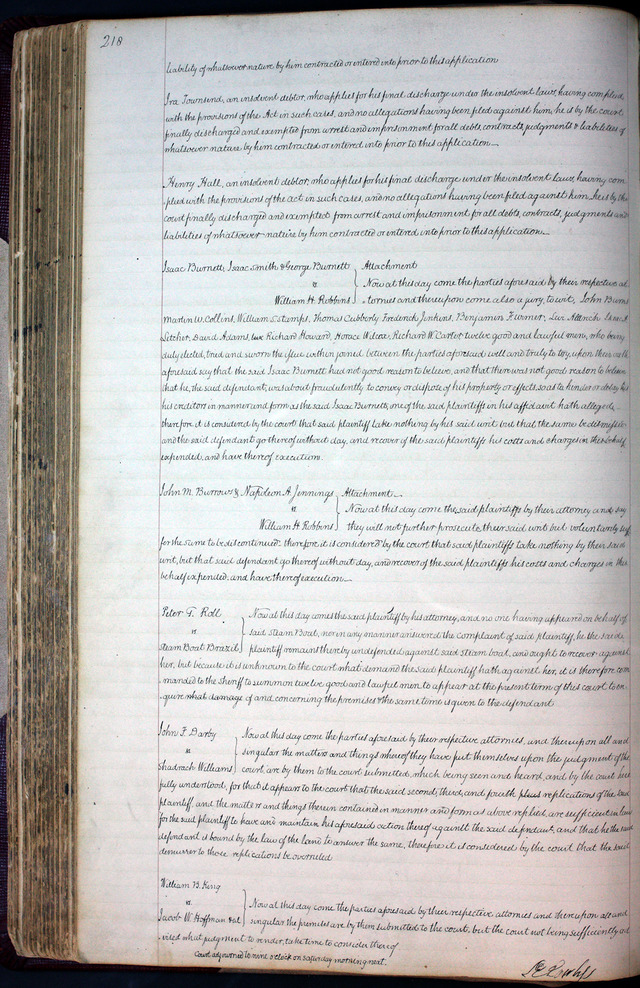 218
liability of whatsoever nature by him contracted or entered into prior to this application
Ira Townsend, an insolvent debtor, who applies for his final discharge under the insolvent laws, having complied
with the provisions of the Act in such cases, and no allegations having been filed against him, he is by the court
finally discharged and exempted from arrest and imprisonment for all debts, contracts, judgments & liabilities of
whatsoever nature by him contracted or entered into prior to this application.
Henry Hall, an insolvent debtor, who applies for his final discharge under the insolvent laws, having com
plied with the provisions of the act in such cases, and no allegations having been filed against him, he is by the
court finally discharged and exempted from arrest and imprisonment for all debts, contracts, judgments and
liabilities of whatsoever nature by him contracted or entered into prior to this application.
Isaac Burnett, Isaac Smith & George Burnett
vs
William H. Robbins
Attachment
Now at this day come the parties aforesaid by their respective at
tornies and thereupon come also a jury, to wit, John Burns
Martin W. Collins, William Stamps, Thomas Cubberly, Frederick Jenkins, Benjamin Turner,
Litcher, David Adams, Richard Howard, Horace Wilcox, Richard W. Carter twelve good and lawful men, who being
duly elected, tried and sworn the issue within joined between the parties aforesaid well and truly to try, upon their oath
aforesaid say that the said Isaac Burnett had not good reason to believe, and that there was not good reason to believe
that he, the said defendant, was about fraudulently to convey or dispose of his property or effects, so as to hinder or delay his
his creditors in manner and form as the said Isaac Burnett, one of the said plaintiffs in his affidavit hath alleged
therefore it is considered by the court that said plaintiff take nothing by his said writ but that the same be dismissed
and the said defendant go thereof without day, and recover of the said plaintiffs his costs and charges in this behalf
expended, and have thereof execution.
John M. Burrows & Napoleon A. Jennings
vs
William H. Robbins
Attachment
Now at this day come the said plaintiffs by their attorney and say
they will not further prosecute their said writ but voluntarily suffer
for the same to be discontinued. therefore it is considered by the court that said plaintiffs take nothing by their said
writ, but that said defendant go thereof without day, and recover of the said plaintiffs his costs and charges in this
behalf expended, and have thereof execution.
Peter T. Roll
vs
Steam Boat Brazil
Now at this day comes the said plaintiff by his attorney, and no one having appeared on behalf of
said Steam Boat, nor in any manner answered the complaint of said plaintiff, he the said
plaintiff remains thereby undefended against said steam boat, and ought to recover against
her, but because it is unknown to the court what demand the said plaintiff hath against her, it is therefore com
manded to the sheriff to summon twelve good and lawful men to appear at the present term of this court to en
quire what damage of and concerning the premises & the same time is given to the defendant
John F. Darby
vs
Shadrach Williams
Now at this day come the parties aforesaid by their respective attornies, and thereupon all and
singular the matters and things whereof they have put themselves upon the judgment of the
court, are by them to the court submitted, which being seen and heard, and by the court
fully understood, for that it appears to the court that the said second, third, and fourth pleas replications of the said
plaintiff, and the matters and things therein contained in manner and form as above replied, are sufficient in law
for the said plaintiff to have and maintain his aforesaid action thereof against the said defendant, and that he the said
defendant is bound by the law of the land to answer the same, therefore it is considered by the court that the said
demurrer to those replications be overruled
William B. King
vs
Jacob W. Hoffman & al
Now at this day come the parties aforesaid by their respective attornies and thereupon all and
singular the premises are by them submitted to the court, but the court not being sufficiently ad
vised what judgment to render, take time to consider thereof
Court adjourned to nine o'clock on saturday morning next.